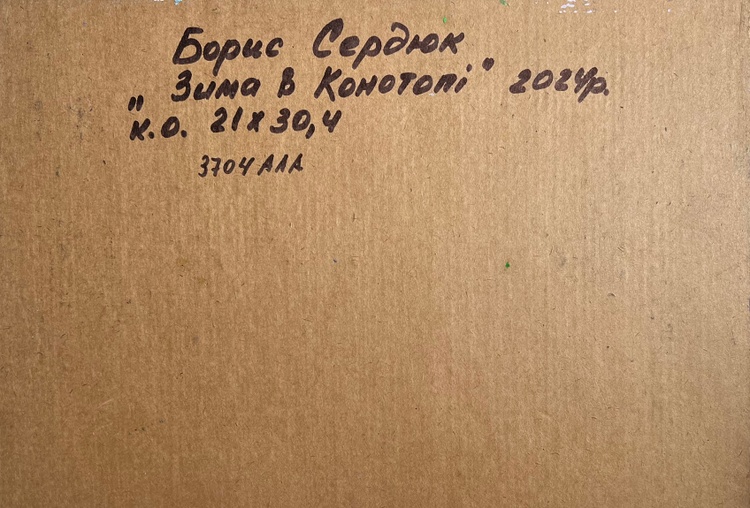 Борис Сердюк
„Зима в Конотопі" 2024р.
к.о. 21х30,4
3704 АЛА